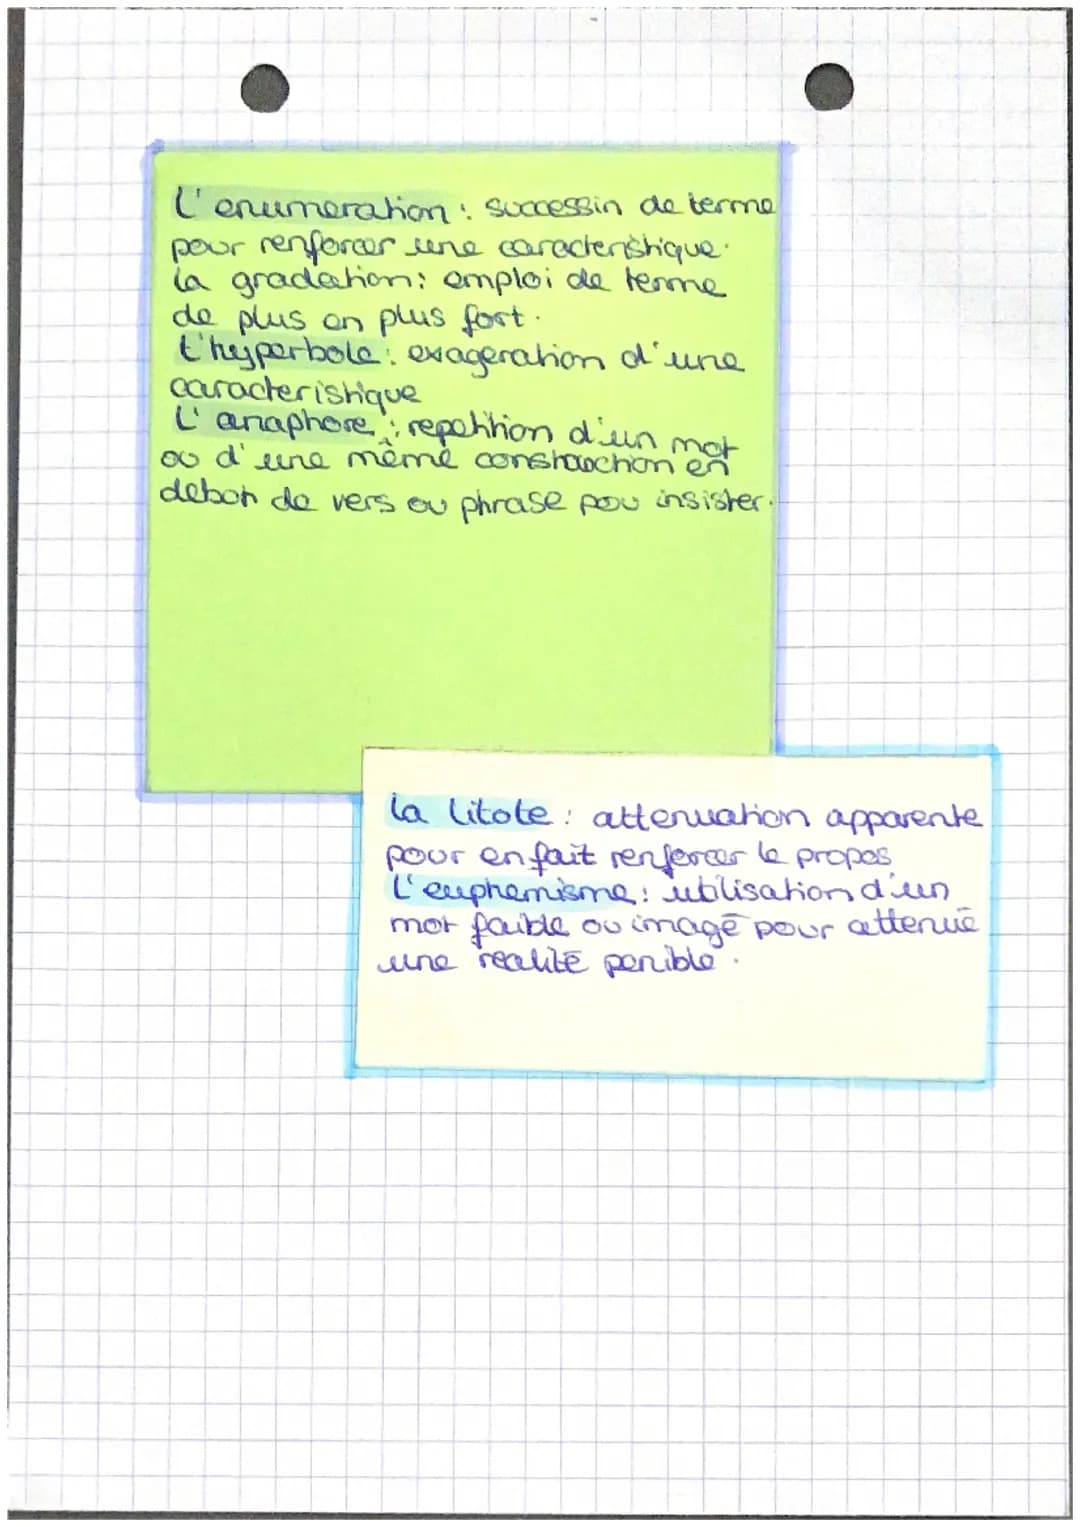 L'enumeration : successin de terme
pour renforcer une caracteristique.
la gradation : emploi de terme
de plus en plus fort.
L'hyperbole : exageration d'une
caracteristique
L'anaphore : repetition d'un mot
ou d'une même construction en
debot de vers ou phrase pou insister.
la litote : attenuation apparente
pour en fait renforcer le propos
L'euphemisme : utilisation d'un
mot faible ou imagé pour attenué
une realité penible.